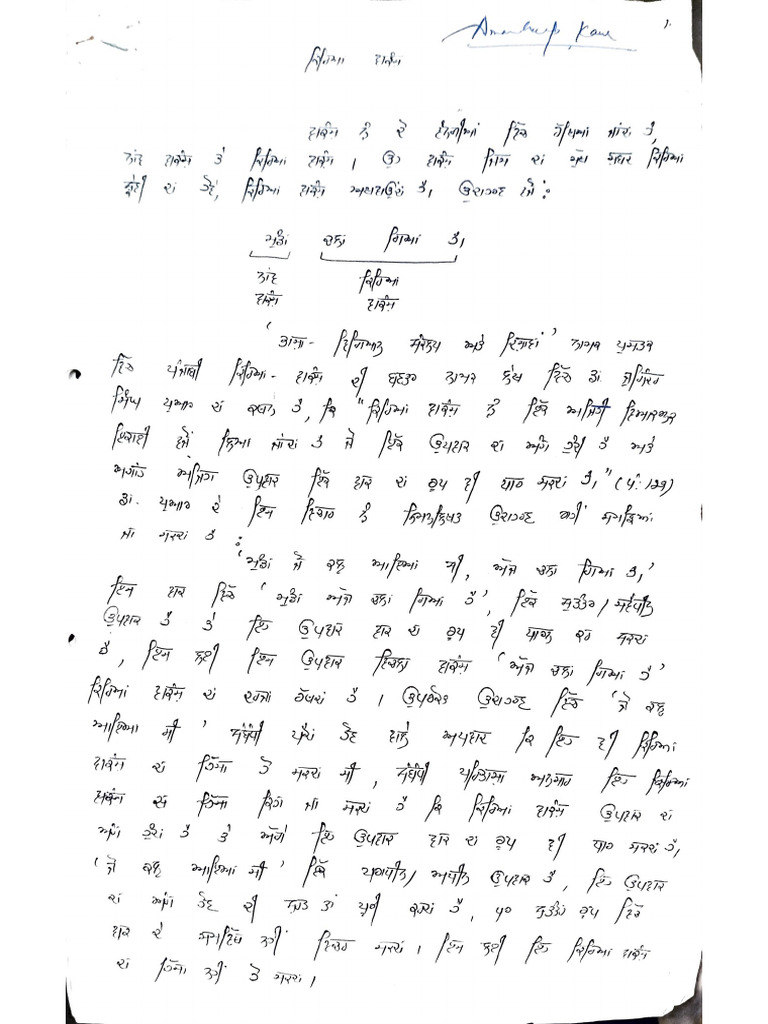 Amandeep Kaur
1.
ਕਿਰਿਆ ਵਾਕੰਸ਼
ਵਾਕੰਸ਼ ਨੂੰ ਦੋ ਸ਼੍ਰੇਣੀਆਂ ਵਿੱਚ ਰੱਖਿਆ ਜਾਂਦਾ ਹੈ,
ਨਾਂਵ ਵਾਕੰਸ਼ ਤੇ ਕਿਰਿਆ ਵਾਕੰਸ਼ । ਉਹ ਵਾਕੰਸ਼ ਜਿਸ ਦਾ ਮੁੱਖ ਸ਼ਬਦ ਕਿਰਿਆ
ਸ਼੍ਰੇਣੀ ਦਾ ਹੋਵੇ, ਕਿਰਿਆ ਵਾਕੰਸ਼ ਅਖਵਾਉਂਦਾ ਹੈ। ਉਦਾਹਰਣ ਵਜੋਂ :
ਮੁੰਡਾ ਚਲਾ ਗਿਆ ਹੈ।
ਨਾਂਵ ਕਿਰਿਆ
ਵਾਕੰਸ਼ ਵਾਕੰਸ਼
'ਭਾਸ਼ਾ-ਵਿਗਿਆਨ ਸੰਕਲਪ ਅਤੇ ਦਿਸ਼ਾਵਾਂ' ਨਾਮਕ ਪੁਸਤਕ
ਵਿੱਚ ਪੰਜਾਬੀ ਕਿਰਿਆ-ਵਾਕੰਸ਼ ਦੀ ਬਣਤਰ ਨਾਮਕ ਲੇਖ ਵਿੱਚ ਡਾ.
ਸਿੰਘ ਦਾ ਕਥਨ ਹੈ, ਕਿ "ਕਿਰਿਆ ਵਾਕੰਸ਼ ਨੂੰ ਇੱਕ ਅਜਿਹੀ ਵਿਆਕਰਨਕ
ਇਕਾਈ ਵਜੋਂ ਲਿਆ ਜਾਂਦਾ ਹੈ ਜੋ ਇੱਕ ਉਪਵਾਕ ਦਾ ਅੰਗ ਹੁੰਦੀ ਹੈ ਅਤੇ
ਅਗਾਂਹ ਅਜਿਹਾ ਉਪਵਾਕ ਇੱਕ ਵਾਕ ਦਾ ਰੂਪ ਵੀ ਧਾਰ ਸਕਦਾ ਹੈ।" (ਪੰ: 129)
ਡਾ. ਦੇ ਇਸ ਵਿਚਾਰ ਨੂੰ ਨਿਮਨਲਿਖਤ ਉਦਾਹਰਣ ਰਾਹੀਂ ਸਮਝਿਆ
ਜਾ ਸਕਦਾ ਹੈ :
'ਮੁੰਡਾ ਜੋ ਕਲ੍ਹ ਆਇਆ ਸੀ, ਅੱਜ ਚਲਾ ਗਿਆ ਹੈ।'
ਇਸ ਵਾਕ ਵਿੱਚ 'ਮੁੰਡਾ ਅੱਜ ਚਲਾ ਗਿਆ ਹੈ', ਇੱਕ ਸੁਤੰਤਰ/ਸਵੈਧੀਨ
ਉਪਵਾਕ ਹੈ ਤੇ ਇਹ ਉਪਵਾਕ ਵਾਕ ਦਾ ਰੂਪ ਵੀ ਧਾਰਨ ਕਰ ਸਕਦਾ
ਹੈ, ਇਸ ਲਈ ਇਸ ਉਪਵਾਕ ਵਿਚਲਾ ਵਾਕੰਸ਼ 'ਅੱਜ ਚਲਾ ਗਿਆ ਹੈ'
ਕਿਰਿਆ ਵਾਕੰਸ਼ ਦਾ ਦਰਜਾ ਰੱਖਦਾ ਹੈ । ਉਪਰੋਕਤ ਉਦਾਹਰਣ ਵਿੱਚ 'ਜੋ ਕਲ੍ਹ
ਆਇਆ ਸੀ' ਸੰਬੰਧੀ ਪੈਦਾ ਹੋਣ ਵਾਲੇ ਕਿ ਇਹ ਵੀ ਕਿਰਿਆ
ਵਾਕੰਸ਼ ਦਾ ਹਿੱਸਾ ਹੋ ਸਕਦਾ ਸੀ, ਸੰਬੰਧੀ ਪਰਿਭਾਸ਼ਾ ਅਨੁਸਾਰ ਇਹ ਕਿਰਿਆ
ਵਾਕੰਸ਼ ਦਾ ਹਿੱਸਾ ਕਿਹਾ ਜਾ ਸਕਦਾ ਹੈ ਕਿ ਕਿਰਿਆ ਵਾਕੰਸ਼ ਉਪਵਾਕ ਦਾ
ਅੰਗ ਹੁੰਦਾ ਹੈ ਤੇ ਅੱਗੋਂ ਇਹ ਉਪਵਾਕ ਵਾਕ ਦਾ ਰੂਪ ਵੀ ਧਾਰ ਸਕਦਾ ਹੈ,
'ਜੋ ਕਲ੍ਹ ਆਇਆ ਸੀ' ਇੱਕ ਪਰਾਧੀਨ/ਅਧੀਨ ਉਪਵਾਕ ਹੈ, ਇਹ ਉਪਵਾਕ
ਦਾ ਅੰਗ ਹੋਣ ਦੀ ਸ਼ਰਤ ਤਾਂ ਪੂਰੀ ਕਰਦਾ ਹੈ, ਪਰ ਸੁਤੰਤਰ ਰੂਪ ਵਿੱਚ
ਵਾਕ ਦੇ ਨਹੀਂ ਵਿਚਰ ਸਕਦਾ । ਇਸ ਲਈ ਇਹ ਕਿਰਿਆ ਵਾਕੰਸ਼
ਦਾ ਹਿੱਸਾ ਨਹੀਂ ਹੋ ਸਕਦਾ ।